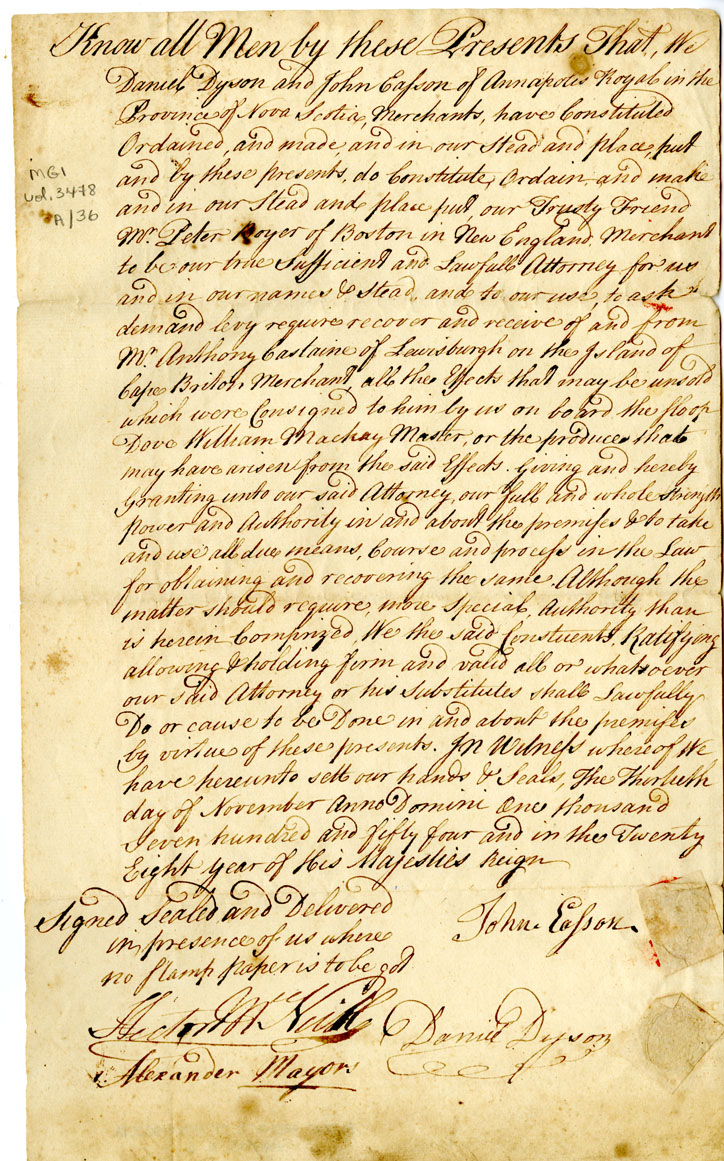 Know all Men by these Presents That, We
Daniel Dyson and John Easson of Annapolis Royal in the
Province of Nova Scotia, Merchants, have Constituted
Ordained, and made and in our Stead and place, put
and by these presents, do Constitute, Ordain and make
and in our Stead and place put, our Trusty Friend
Mr. Peter Royer of Boston in New England, Merchant
to be our true Sufficient and Lawfull Attorney for us
and in our names & Stead, and to our use, to ask
demand levy require recover and receive of and from
Mr. Anthony Castaine of Lewisburgh on the Island of
Cape Briton Merchant, all the Effects that may be unsold
which were Consigned to him by us on board the Sloop
Dove William Mackay Master, or the produce that
may have arisen from the said Effects. Giving and hereby
Granting unto our said Attorney, our full and whole strength
power and Authority in and about the premises & to take
and use all due means, Course and process in the Law
for obtaining and recovering the same Although the
matter should require more Special Authority than
is herein Comprized, We the said Constuents, Ratifying
allowing & holding firm and valid all or whatsoever
our said Attorney or his Substitutes shall Lawfully
Do or cause to be Done in and about the premises
by virtue of these presents. In Witness whereof We
have hereunto sett our hands & Seals, The Thirtieth
day of November Anno Domini One thousand
Seven hundred and fifty four and in the Twenty
Eight year of His Majesties Reign
MG1
vol. 3478
A/36
Signed Sealed and Delivered
in presence of us where
no Stamp paper is to be got
John Easson.
Hector McNeill
Daniel Dyson
Alexander Mayors